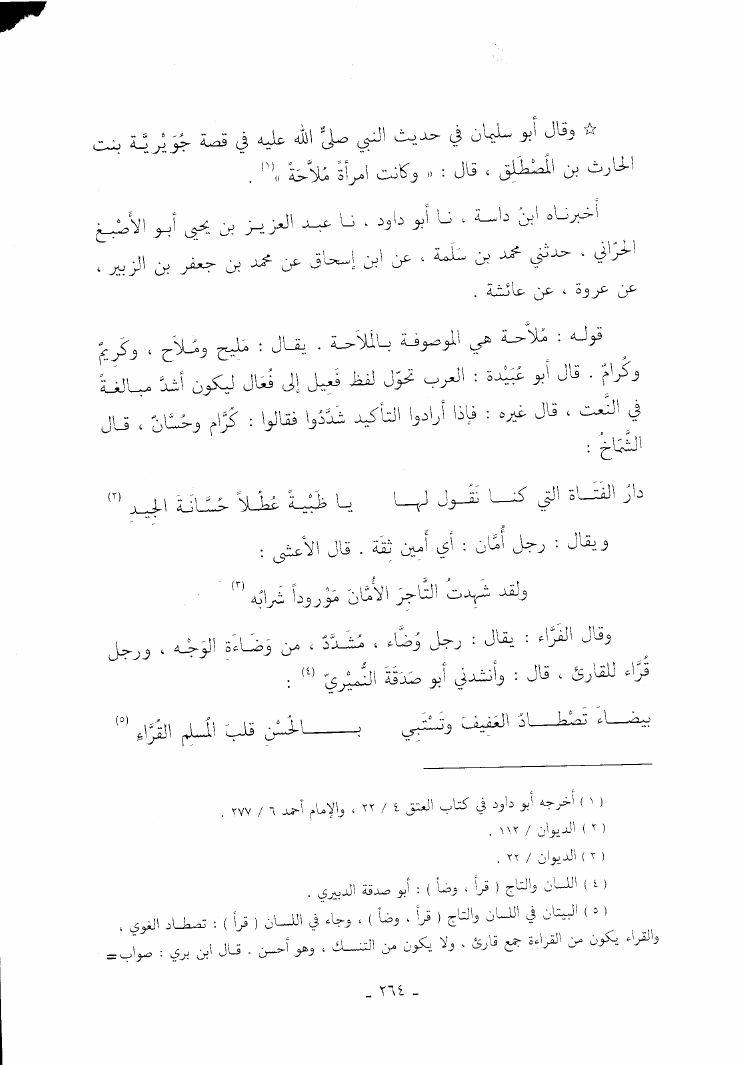 ☆ وقال أبو سليمان في حديث النبي صلىَّ الله عليه في قصة جُوَيْريَّة بنت
الحارث بن المُصْطَلِق ، قال : « وكانت امرأةً مُلاَّحَةً »(١) .
أخبرناه ابنُ داسة ، نا أبو داود ، نا عبد العزيز بن يحيى أبو الأَصْبَغ
الحرّاني ، حدثني محمد بن سَلَمة ، عن ابن إسحاق عن محمد بن جعفر بن الزبير ،
عن عروة ، عن عائشة .
قوله : مُلاَّحة هي الموصوفة بالمَلاحَة . يقال : مَليح ومُلاَح ، وكَرِيمٌ
وكُرامٌ . قال أبو عُبَيْدة : العرب تحوّل لفظ فَعِيل إلى فُعَال ليكون أشدَّ مبالغةً
في النَّعت ، قال غيره : فإذا أرادوا التأكيد شَدَّدُوا فقالوا : كُرَّام وحُسَّانٌ ، قال
الشَّمَاخُ :
دارُ الفَتَاة التي كنا نَقُول لها يا ظَبْيةً عُطُلاً حُسَّانَةَ الجِيدِ (٢)
ويقال : رجل أُمَّان : أي أَمِين ثِقَة . قال الأعشى :
ولقد شَهِدتُ التَّاجِرَ الأُمَّانَ مَوْروداً شَرابُه (٣)
وقال الفَرَّاء : يقال : رجل وُضَّاء ، مُشَدَّدٌ ، من وَضَاءَةِ الوَجْه ، ورجل
قُرَّاء للقارئ ، قال : وأنشدني أبو صَدَقَة النُّمَيْريّ (٤) :
بيضاءَ تَصْطادُ العَفيفَ وتَسْتَبي بالحُسْنِ قلبَ المُسلمِ القُرَّاءِ (٥)
(١) أخرجه أبو داود في كتاب العتق ٤ / ٢٢ ، والإمام أحمد ٦ / ٢٧٧ .
(٢) الديوان / ١١٢ .
(٣) الديوان / ٢٢ .
(٤) اللسان والتاج ( قرأ ، وضأ ) : أبو صدقة الدبيري .
(٥) البيتان في اللسان والتاج ( قرأ ، وضأ ) ، وجاء في اللسان ( قرأ ) : تصطاد الغوي ،
والقراء يكون من القراءة جمع قارئ ، ولا يكون من التنسك ، وهو أحسن . قال ابن بري : صواب=
ـ ٢٦٤ ـ